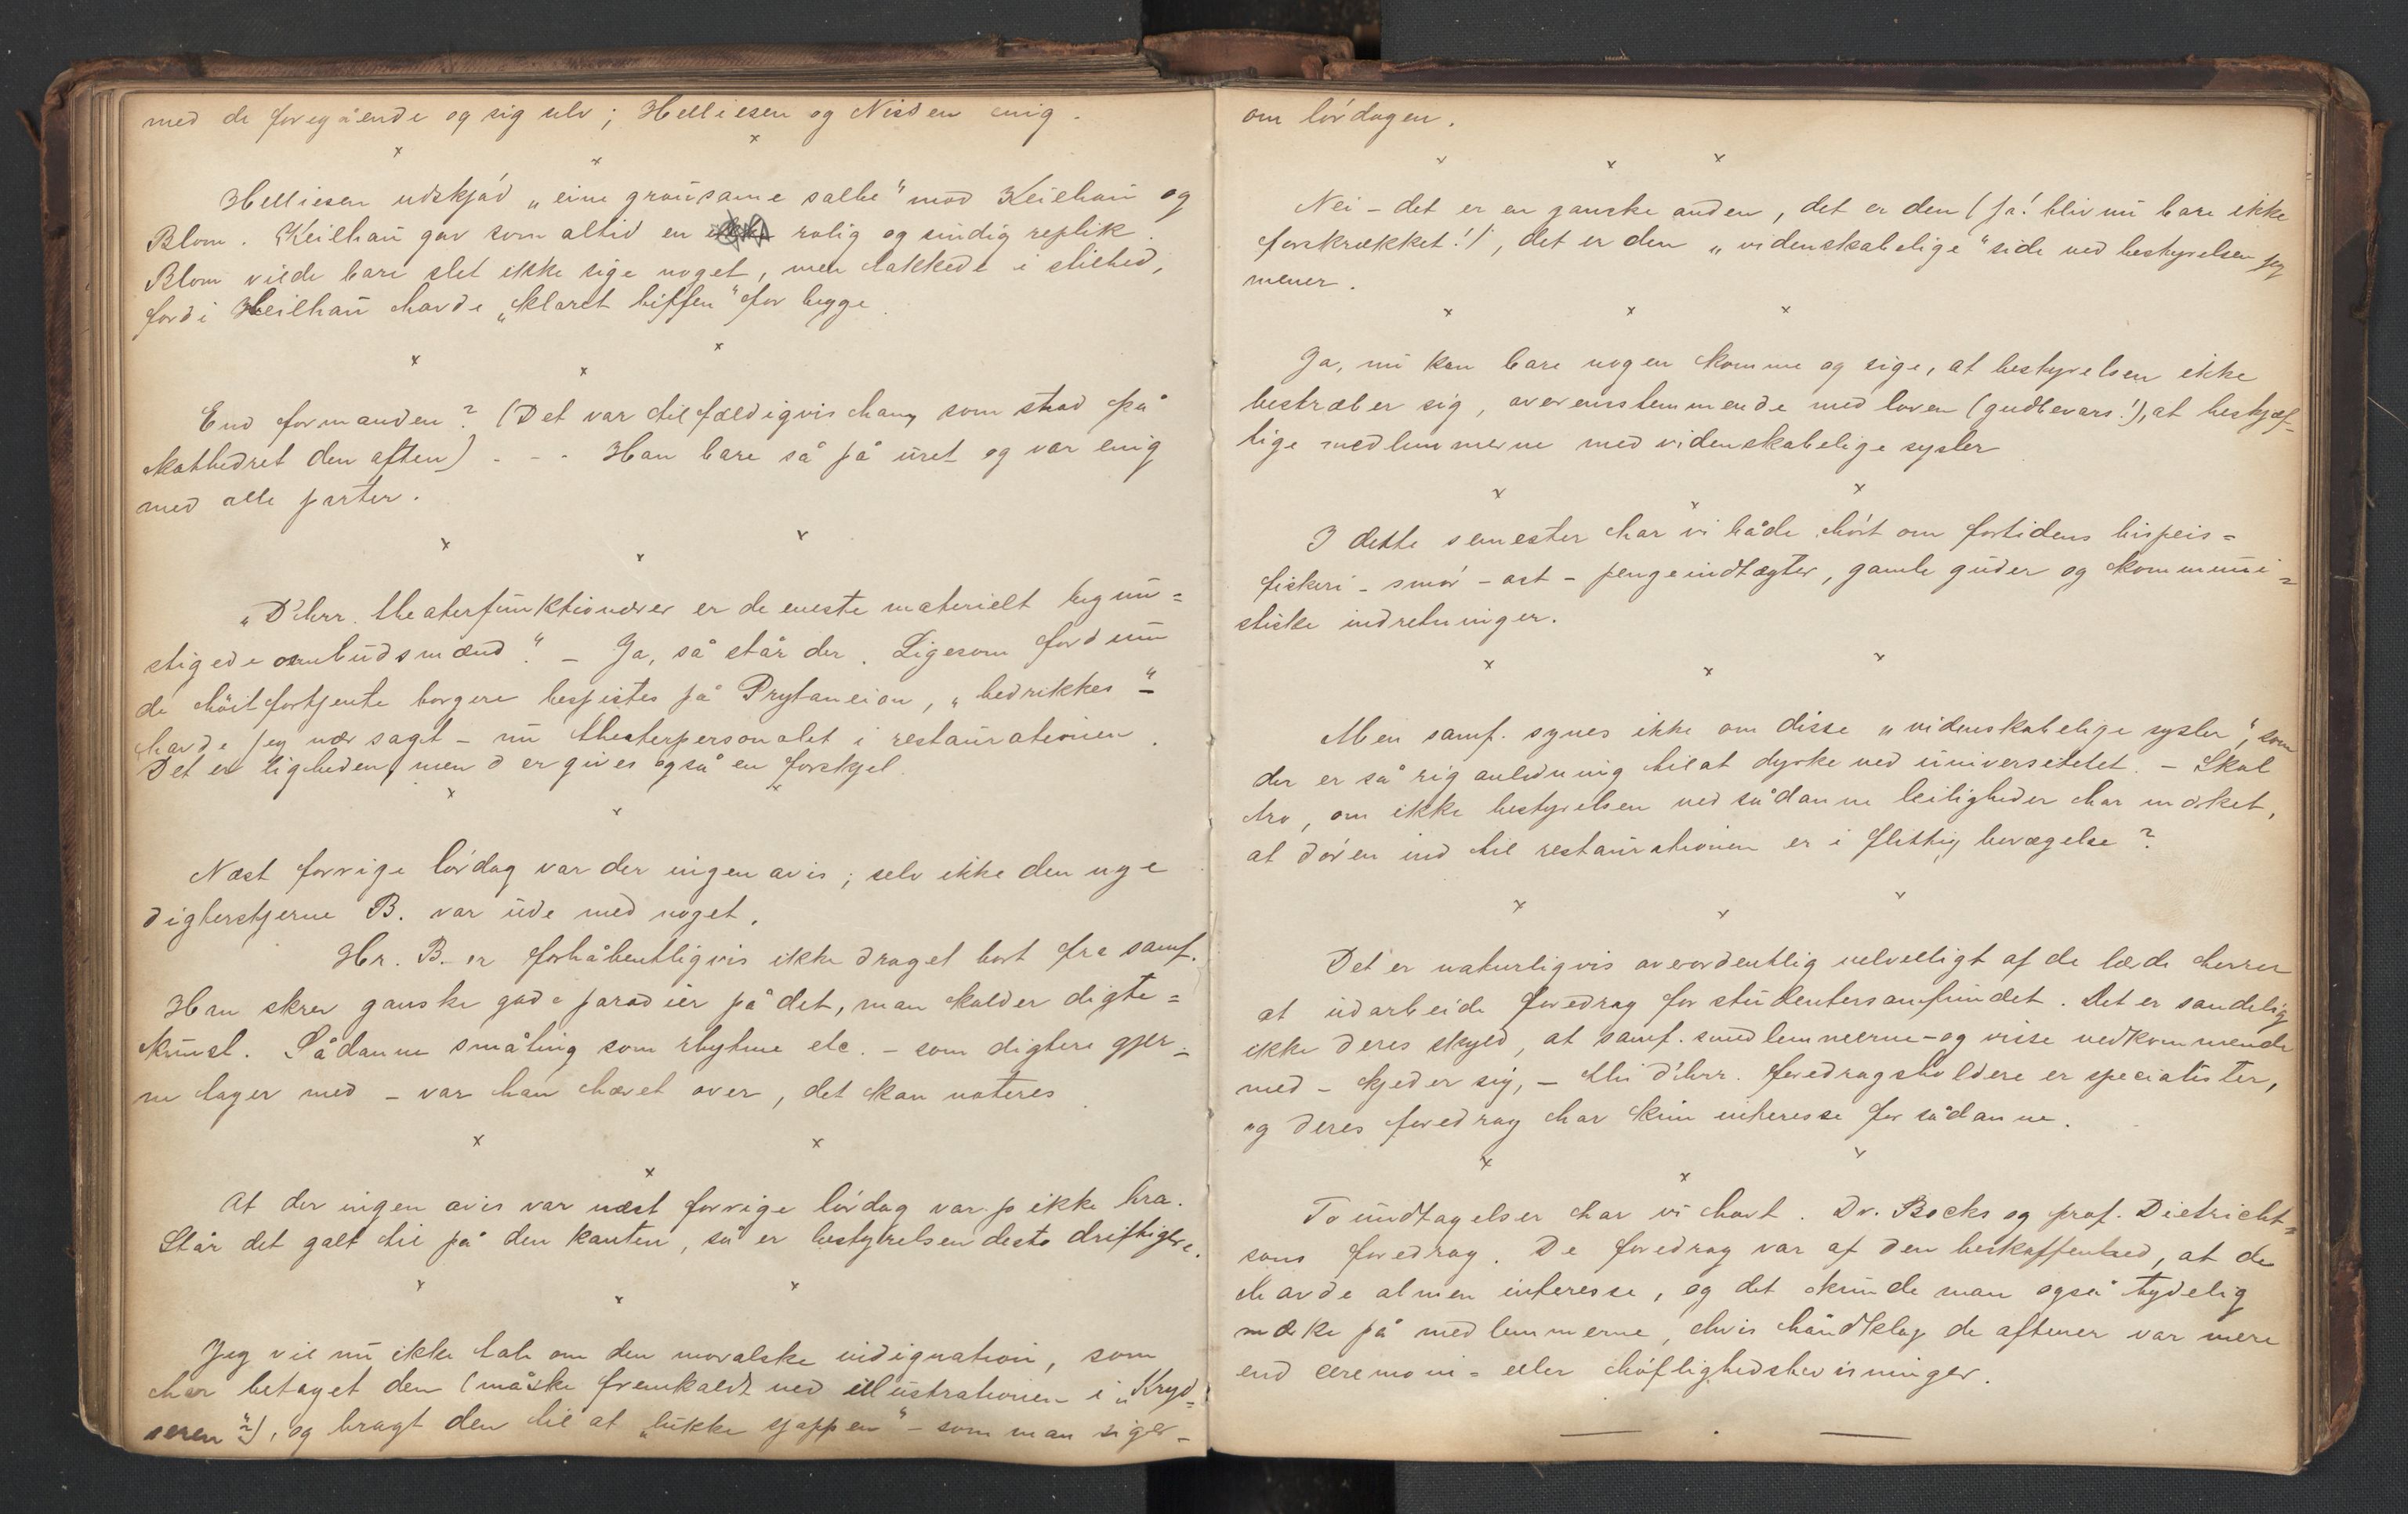 med de foregående og sig selv; Helliesen og Nissen enig.
x x x
Helliesen udskjød „eine grausame salbe" mod Keilhau og
Blom. Keilhau gav som altid en rolig og sindig replik.
Blom vilde bare slet ikke sige noget, men takkede i stilhed,
fordi Keilhau havde „klaret biffen" for begge.
x x x
End formanden? (Det var tilfældigvis ham, som stod på
kathedret den aften) - - - Han bare så på uret og var enig
med alle parter.
x x x
„D'hrr. theaterfunktionærer er de eneste materielt begun=
stigede ombudsmænd." – Ja, så står der. Ligesom fordum
de höitfortjente borgere bespistes på Prytaneion, „bedrikkes" –
havde jeg nær sagt – nu theaterpersonalet i restaurationen.
Det er ligheden, men der gives også en forskjel.
x x x
Næst forrige lördag var der ingen avis; selv ikke den nye
digterstjerne B. var ude med noget.
Hr. B. er forhåbentligvis ikke draget bort fra samf.
Han skrev ganske gode parodier på det, man kalder digte=
kunst. Sådanne småting som rhytme etc. – som digtere gjer=
ne tager med – var han hævet over, det kan noteres.
x x x
At der ingen avis var næst forrige lördag var jo ikke bra.
Står det galt til på den kanten, så er bestyrelsen desto driftigere.
x x x
Jeg vil nu ikke tale om den moralske indignation, som
har betaget den (måske fremkaldt ved illustrationen i „Kryd=
seren"?), og bragt den til at „lukke sjappen" – som man siger –
om lördagen.
x x x
Nei – det er en ganske anden, det er den (ja! bliv nu bare ikke
forskrækket!), det er den „videnskabelige" side ved bestyrelsen jeg
mener.
x x x
Ja, nu kan bare nogen komme og sige, at bestyrelsen ikke
bestræber sig, overensstemmende med loven (gudbevars!), at beskjæf=
tige medlemmerne med videnskabelige sysler
x x x
I dette semester har vi både hört om fortidens bispeis=
fiskeri – smör – ost – pengeindtægter, gamle guder og kommuni=
stiske indretninger.
x x x
Men samf. synes ikke om disse „videnskabelige sysler", som
der er så rig anledning til at dyrke ved universitetet. – Skal
tro, om ikke bestyrelsen ved sådanne leiligheder har mærket,
at dören ind til restaurationen er i flittig bevægelse?
x x x
Det er naturligvis overordentlig velvilligt af de lærde herrer
at udarbeide foredrag for studentersamfundet. Det er sandelig
ikke deres skyld, at samf.smedlemmerne – og visse vedkommende
med – kjeder sig, – thi d'hrr. foredragsholdere er specialister,
og deres foredrag har kun interesse for sådanne.
x x x
To undtagelser har vi havt. Dr. Bocks og prof. Dietricht=
sons foredrag. De foredrag var af den beskaffenhed, at de
havde almen interesse, og det kunde man også tydelig
mærke på medlemmerne, hvis håndklap de aftener var mere
end ceremoni- eller höflighedsbevisninger.